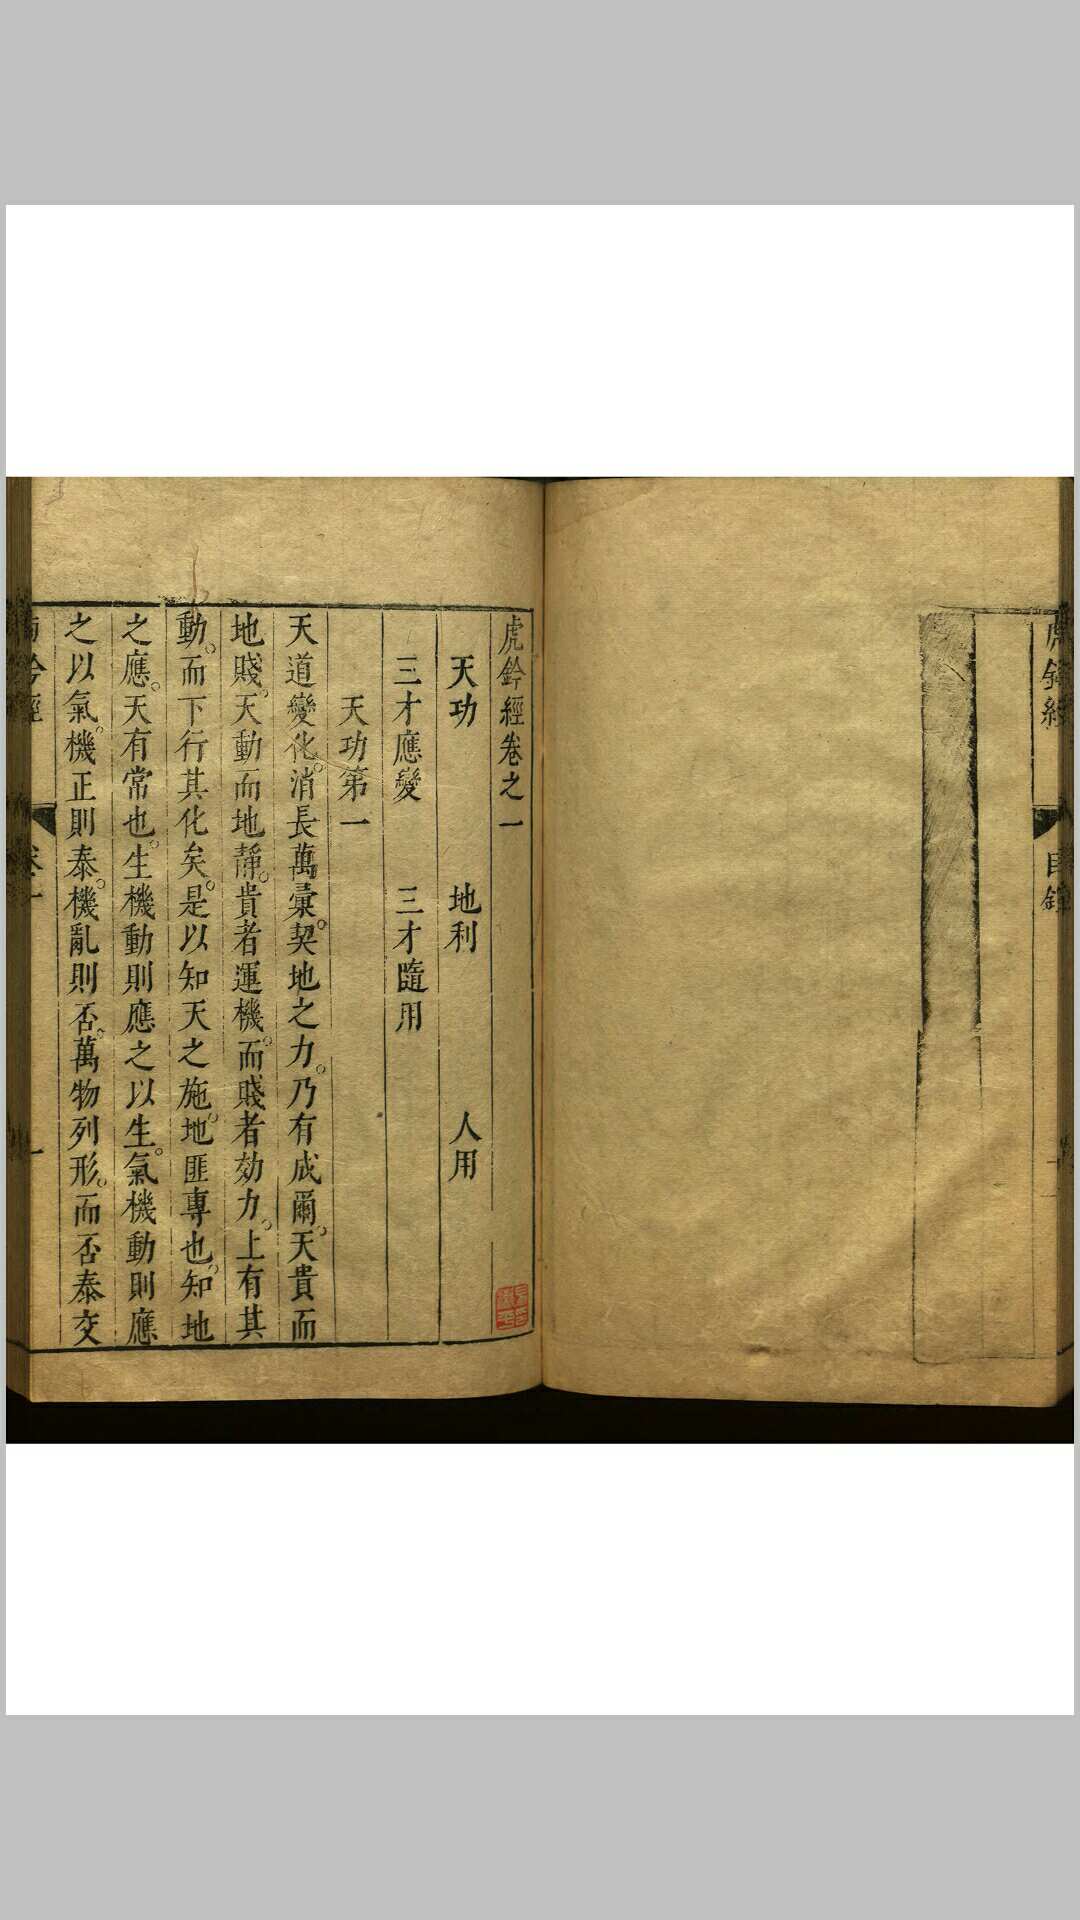 虎鈐經
目錄
虎鈐經卷之一
天功 地利 人用
三才應變 三才隨用
天功第一
天道變化。消長萬彙。契地之力。乃有成爾。天貴而
地賤。天動而地靜。貴者運機。而賤者効力。上有其
動。而下行其化矣。是以知天之施。地匪專也。知地
之應。天有常也。生機動則應之以生。氣機動則應
之以氣。機正則泰。機亂則否。萬物列形。而否泰交
卷一
一